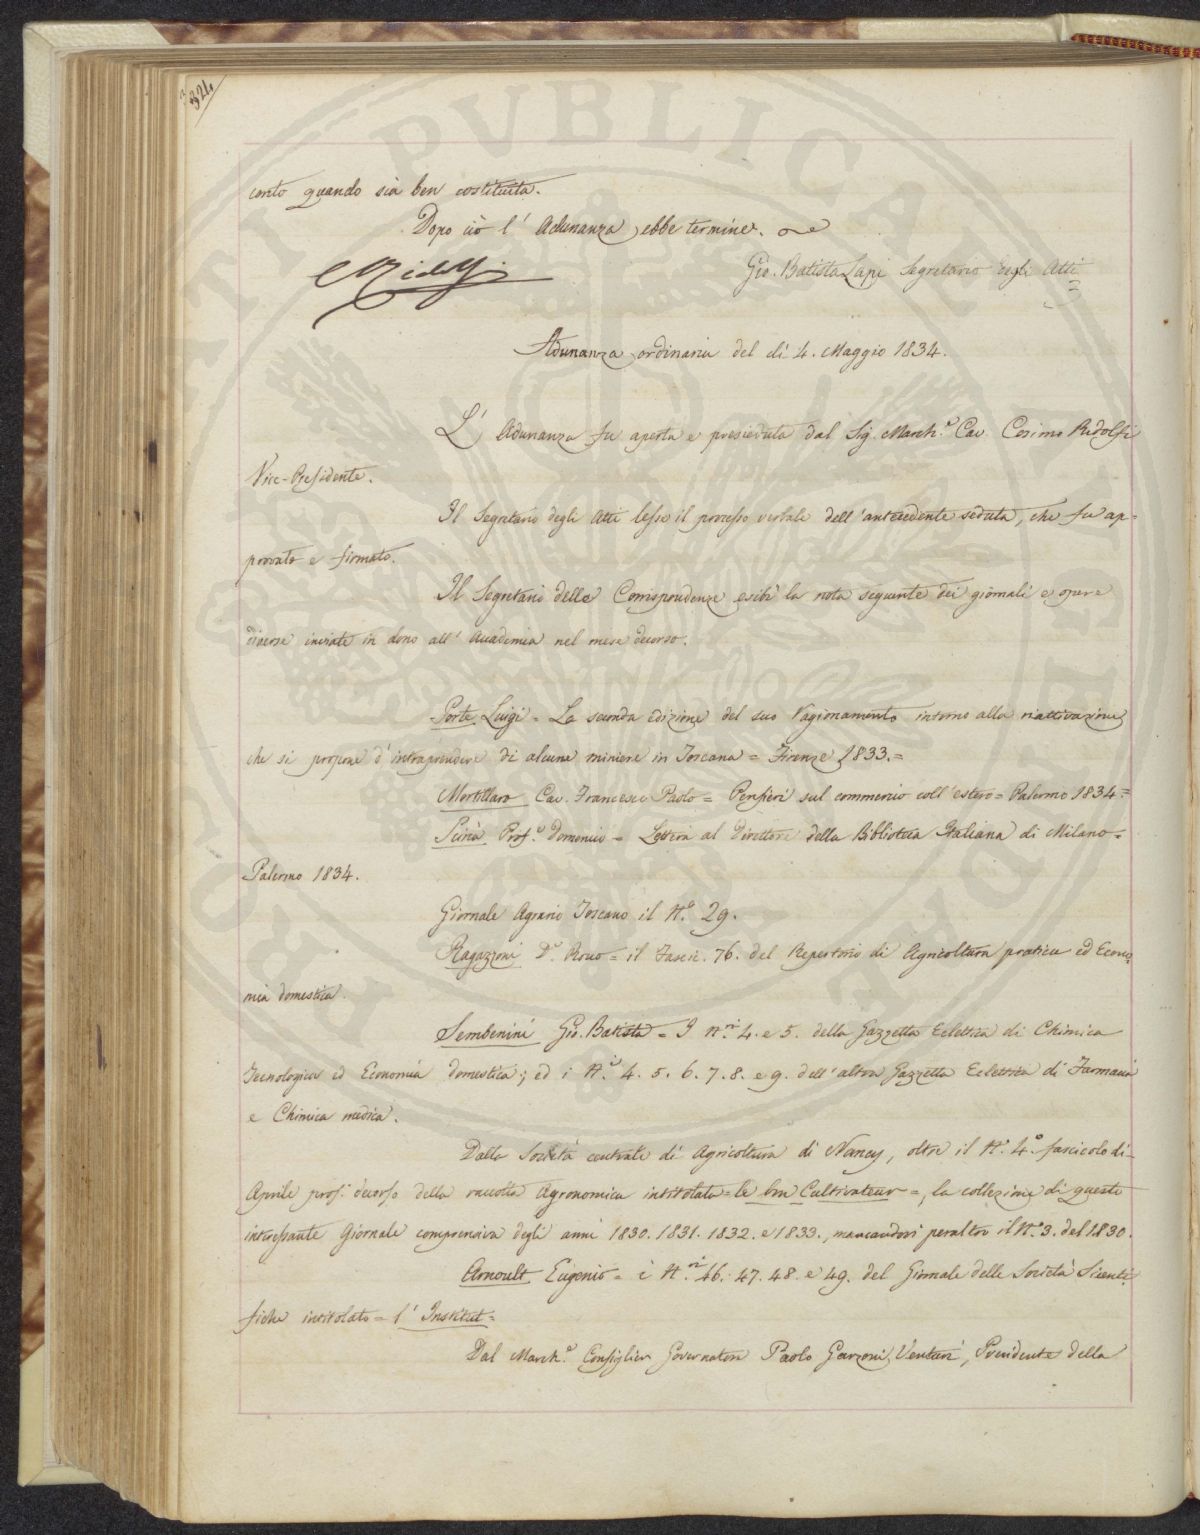 324
conto quando sia ben costituita.
Dopo ciò l' Adunanza ebbe termine.
C Ridolfi
Gio. Batista Lapi Segretario degli Atti
Adunanza ordinaria del dì 4. Maggio 1834.
L' Adunanza fu aperta e presieduta dal Sig. March.e Cav. Cosimo Ridolfi
Vice-Presidente.
Il Segretario degli Atti lesse il processo verbale dell' antecedente seduta, che fu ap-
provato e firmato.
Il Segretario delle Corrispondenze esibì la nota seguente dei giornali e opere
diverse inviate in dono all' Accademia nel mese decorso.
Porte Luigi = La seconda edizione del suo Ragionamento intorno alla riattivazione
che si propone d' intraprendere di alcune miniere in Toscana = Firenze 1833. =
Mortillaro Cav. Francesco Paolo = Pensieri sul commercio coll' estero = Palermo 1834. =
Scinà Prof.e Domenico = Lettera al Direttore della Biblioteca Italiana di Milano =
Palermo 1834.
Giornale Agrario Toscano il N.o 29.
Ragazzoni D.e Rocco = il Fascic. 76. del Repertorio di Agricoltura pratica ed Econo-
mia domestica.
Sembenini Gio. Batista = I N.ri 4. e 5. della Gazzetta Eclettica di Chimica
Tecnologica ed Economia domestica; ed i N.i 4. 5. 6. 7. 8. e 9. dell' altra Gazzetta Eclettica di Farmacia
e Chimica medica.
Dalla Società centrale di Agricoltura di Nancy, oltre il N.o 4.o fascicolo di
Aprile pross. decorso della raccolta Agronomica intitolata = le bon Cultivateur =, la collezione di questo
interessante Giornale comprensiva degli anni 1830. 1831. 1832. e 1833., mancandovi peraltro il N.o 3. del 1830.
Arnoult Eugenio = i N.ri 46. 47. 48. e 49. del Giornale delle Società Scienti-
fiche intitolato = l' Institut =
Dal March.e Consiglier Governatore Paolo Garzoni Venturi, Presidente della